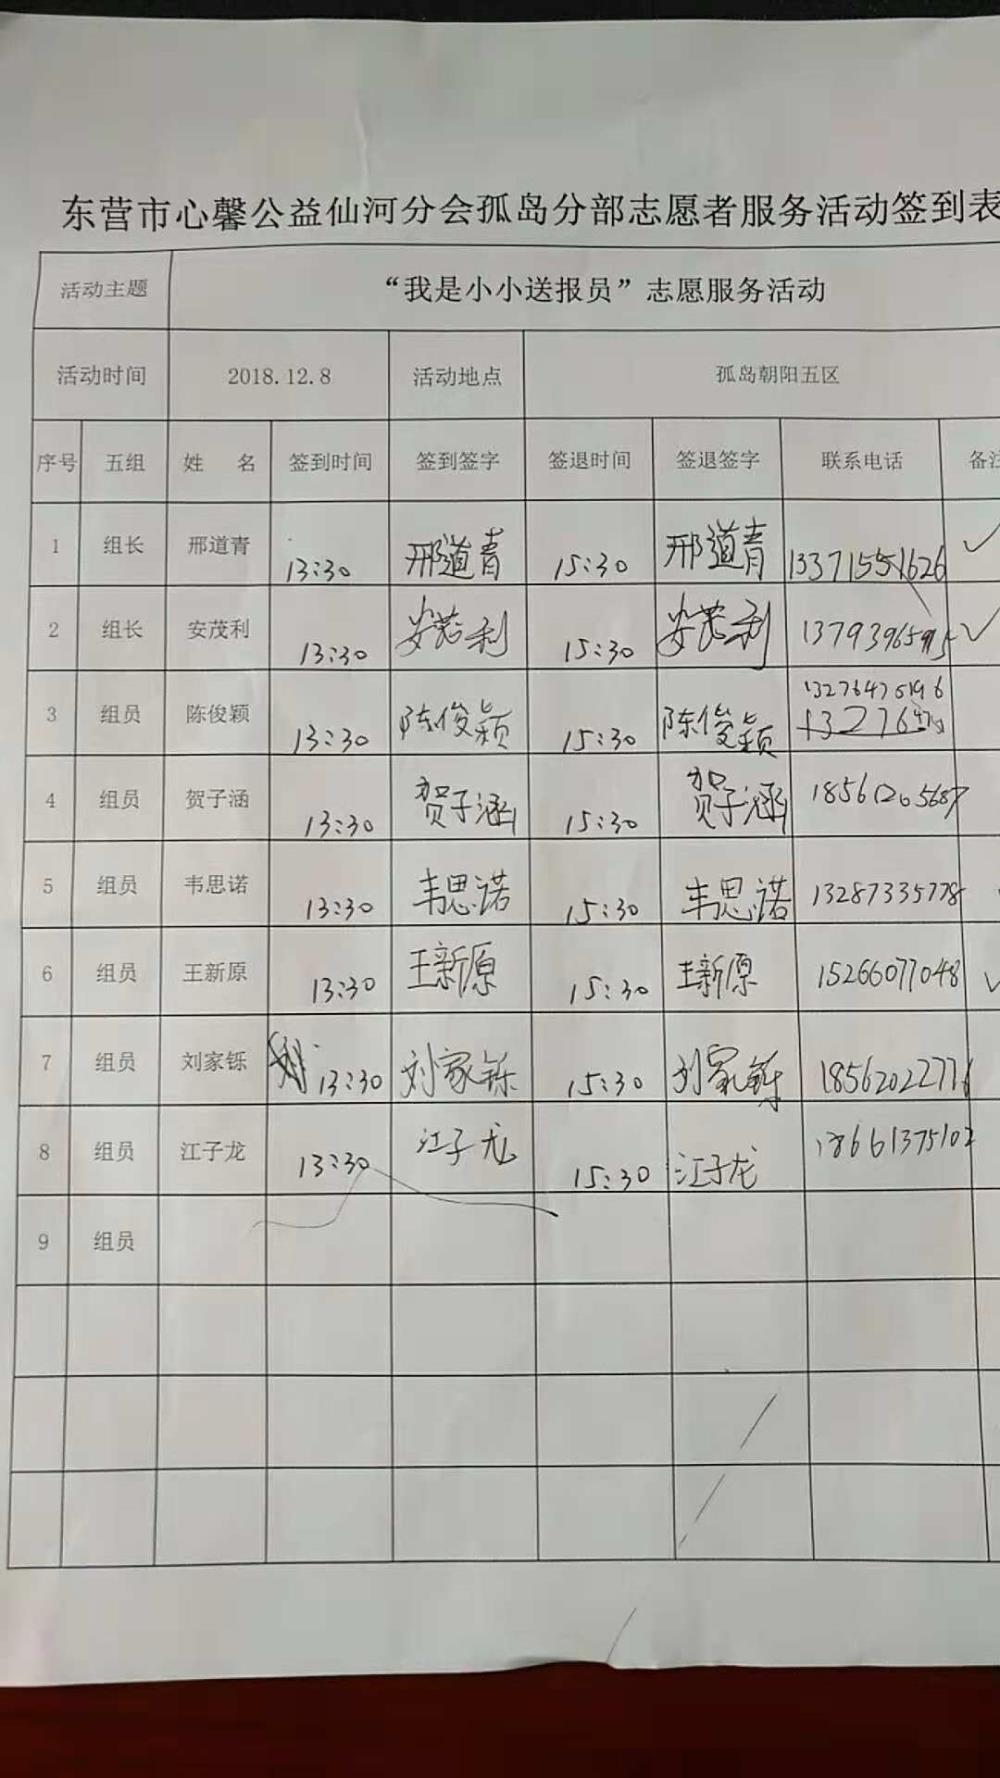 东营市心馨公益仙河分会孤岛分部志愿者服务活动签到表
活动主题 “我是小小送报员”志愿服务活动
活动时间 2018.12.8 活动地点 孤岛朝阳五区
序号 五组 姓 名 签到时间 签到签字 签退时间 签退签字 联系电话 备注
1 组长 邢道青 13:30 邢道青 15:30 邢道青 13371551626
2 组长 安茂利 13:30 安茂利 15:30 安茂利
3 组员 陈俊颖 13:30 陈俊颖 15:30 陈俊颖 13276475196
4 组员 贺子涵 13:30 贺子涵 15:30 贺子涵 18561205687
5 组员 韦思诺 13:30 韦思诺 15:30 韦思诺 13287335778
6 组员 王新原 13:30 王新原 15:30 王新原 15266077048
7 组员 刘家铄 13:30 刘家铄 15:30 刘家铄 18562022776
8 组员 江子龙 13:30 江子龙 15:30 江子龙 18661375102
9 组员